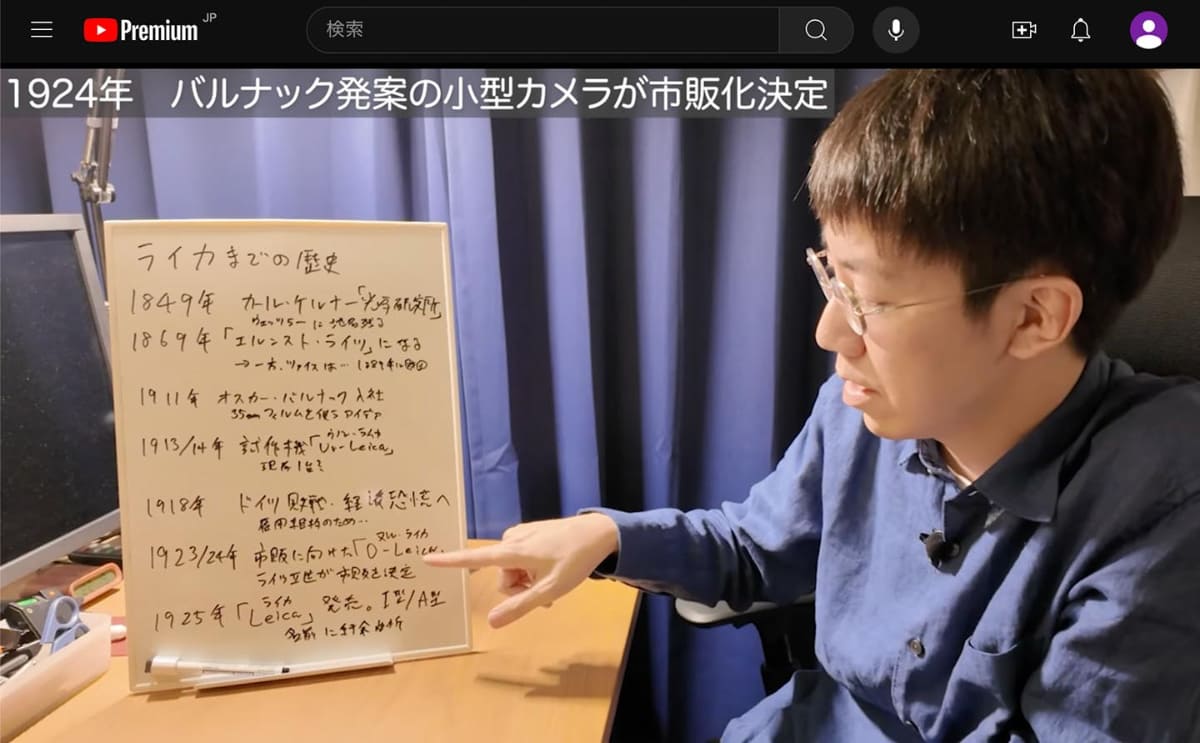 Premium JP
検索
1924年 バルナック発案の小型カメラが市販化決定
ライカまでの歴史
1849年 カール・ケルナー「光学研究所」
ウェッツラーに地名残る
1869年「エルンスト・ライツ」になる
→一方、ツァイスは…
1911年 オスカー・バルナック入社
35mmフィルムを使うアイデア
1913/14年 試作機「Ur-Leica」
ウル・ライカ
現存1台?
1918年 ドイツ敗戦・経済恐慌へ
雇用維持のため…
1923/24年 市販に向けた「0-Leica」
ヌル・ライカ
ライツII世が市販を決定
1925年「Leica」発売。I型/A型
ライカ
名前に